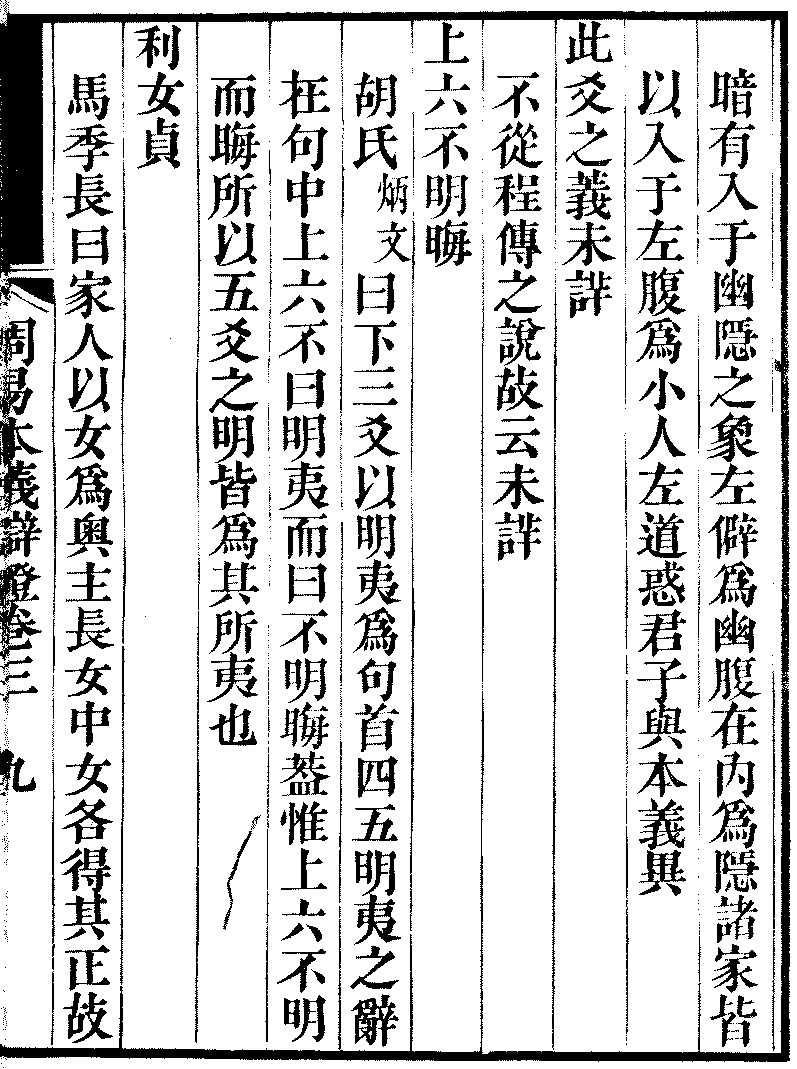 暗有入于幽隱之象左僻爲幽腹在內爲隱諸家皆
以入于左腹爲小人左道惑君子與本義異
此爻之義未詳
不從程傳之說故云未詳
上六不明晦
胡氏炳文曰下三爻以明夷爲句首四五明夷之辭
在句中上六不曰明夷而曰不明晦蓋惟上六不明
而晦所以五爻之明皆爲其所夷也
利女貞
馬季長曰家人以女爲奧主長女中女各得其正故
周易本義辯證卷三 九